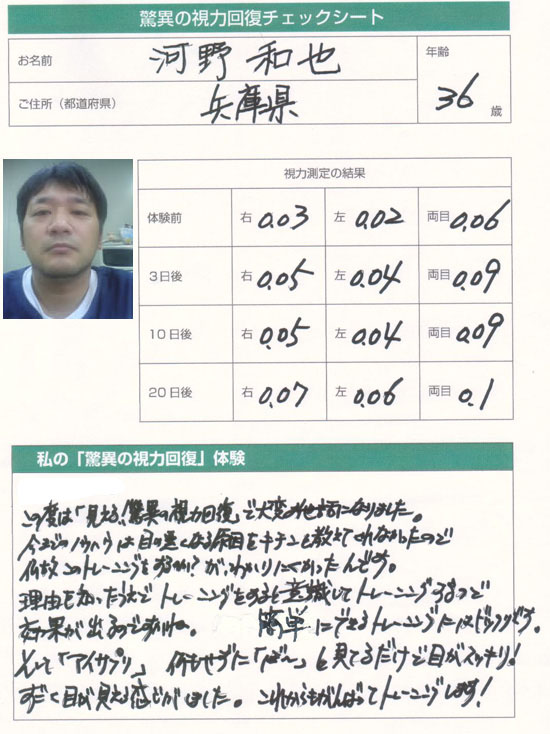 驚異の視力回復チェックシート
お名前 河野 和也 年齢
ご住所（都道府県） 兵庫県 36 歳
視力測定の結果
体験前 右 0.03 左 0.02 両目 0.06
3日後 右 0.05 左 0.04 両目 0.09
10日後 右 0.05 左 0.04 両目 0.09
20日後 右 0.07 左 0.06 両目 0.1
私の「驚異の視力回復」体験
この度は「見える、驚異の視力回復」で大変お世話になりました。
今までのノウハウは目の悪くなる原因をキチンと教えてくれなかったので
何故このトレーニングをするのか？がわかりにくかったんです。
理由を知ったうえでトレーニングをすると意識してトレーニングするので
効果が出るのですね。 簡単にできるトレーニングにはビックリです。
そして「アイサプリ」 何もせずに「ぼ〜」と見てるだけで目がスッキリ！
すごく目が見える感じがしました。これからもがんばってトレーニングします！